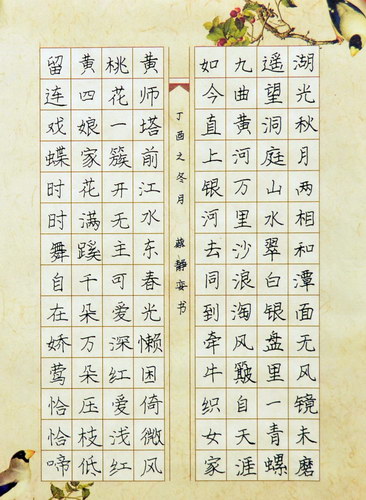 湖光秋月两相和潭面无风镜未磨
遥望洞庭山水翠白银盘里一青螺
九曲黄河万里沙浪淘风簸自天涯
如今直上银河去同到牵牛织女家
丁酉之冬月 静书
黄师塔前江水东春光懒困倚微风
桃花一簇开无主可爱深红爱浅红
黄四娘家花满蹊千朵万朵压枝低
留连戏蝶时时舞自在娇莺恰恰啼